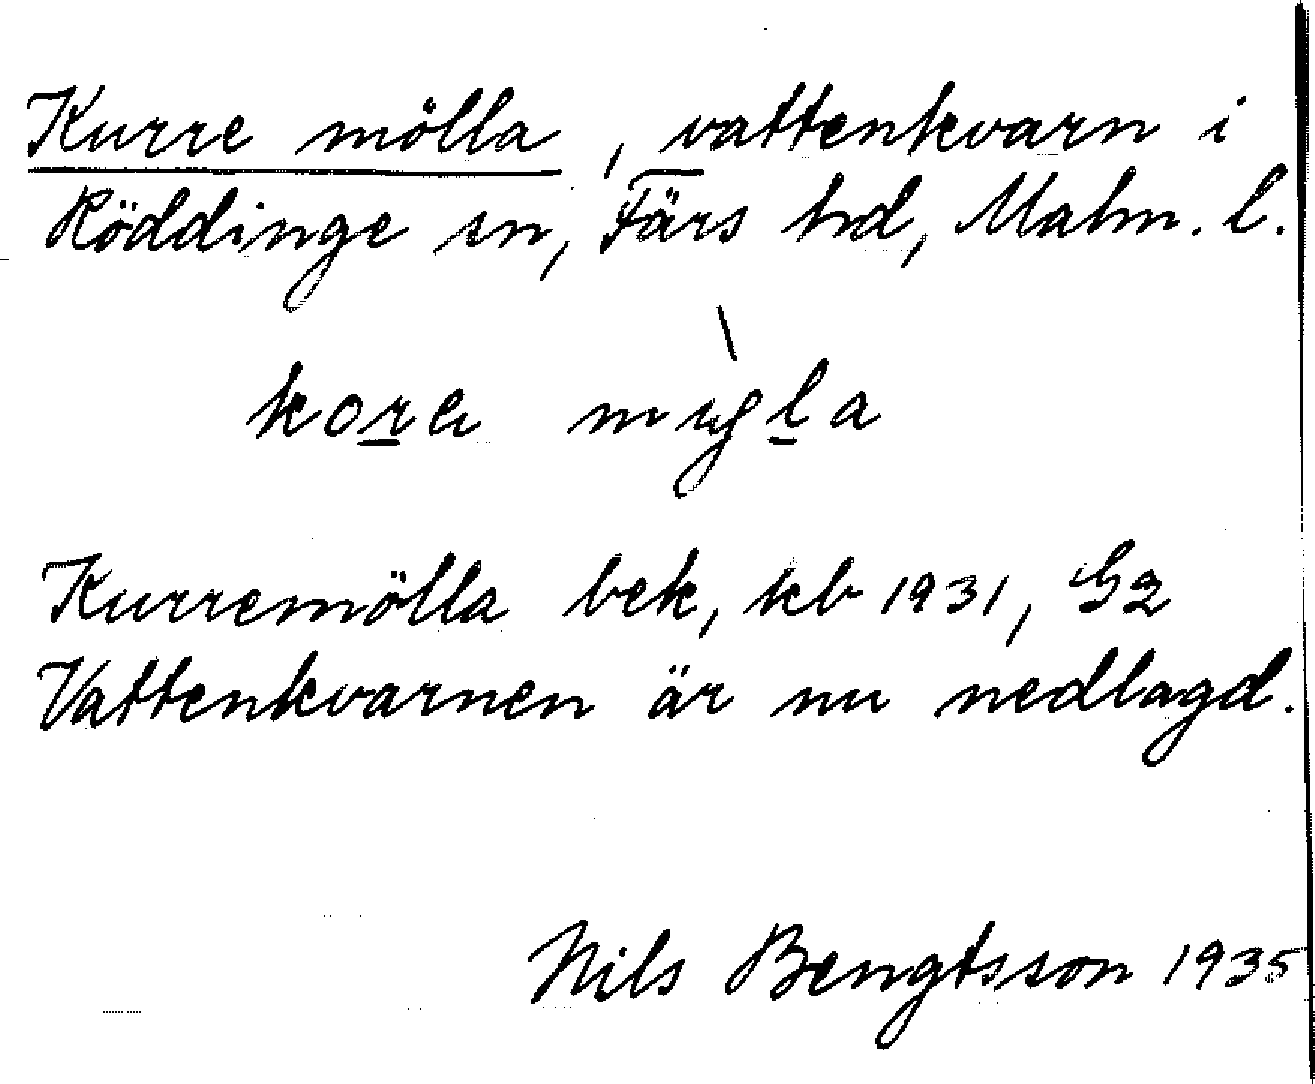 Kurre mölla, vattenkvarn i
Röddinge sn, Färs hd, Malm. l.
Kurremölla bek, kb 1931, G2
Vattenkvarnen är nu nedlagd.
Nils Bengtsson 1935